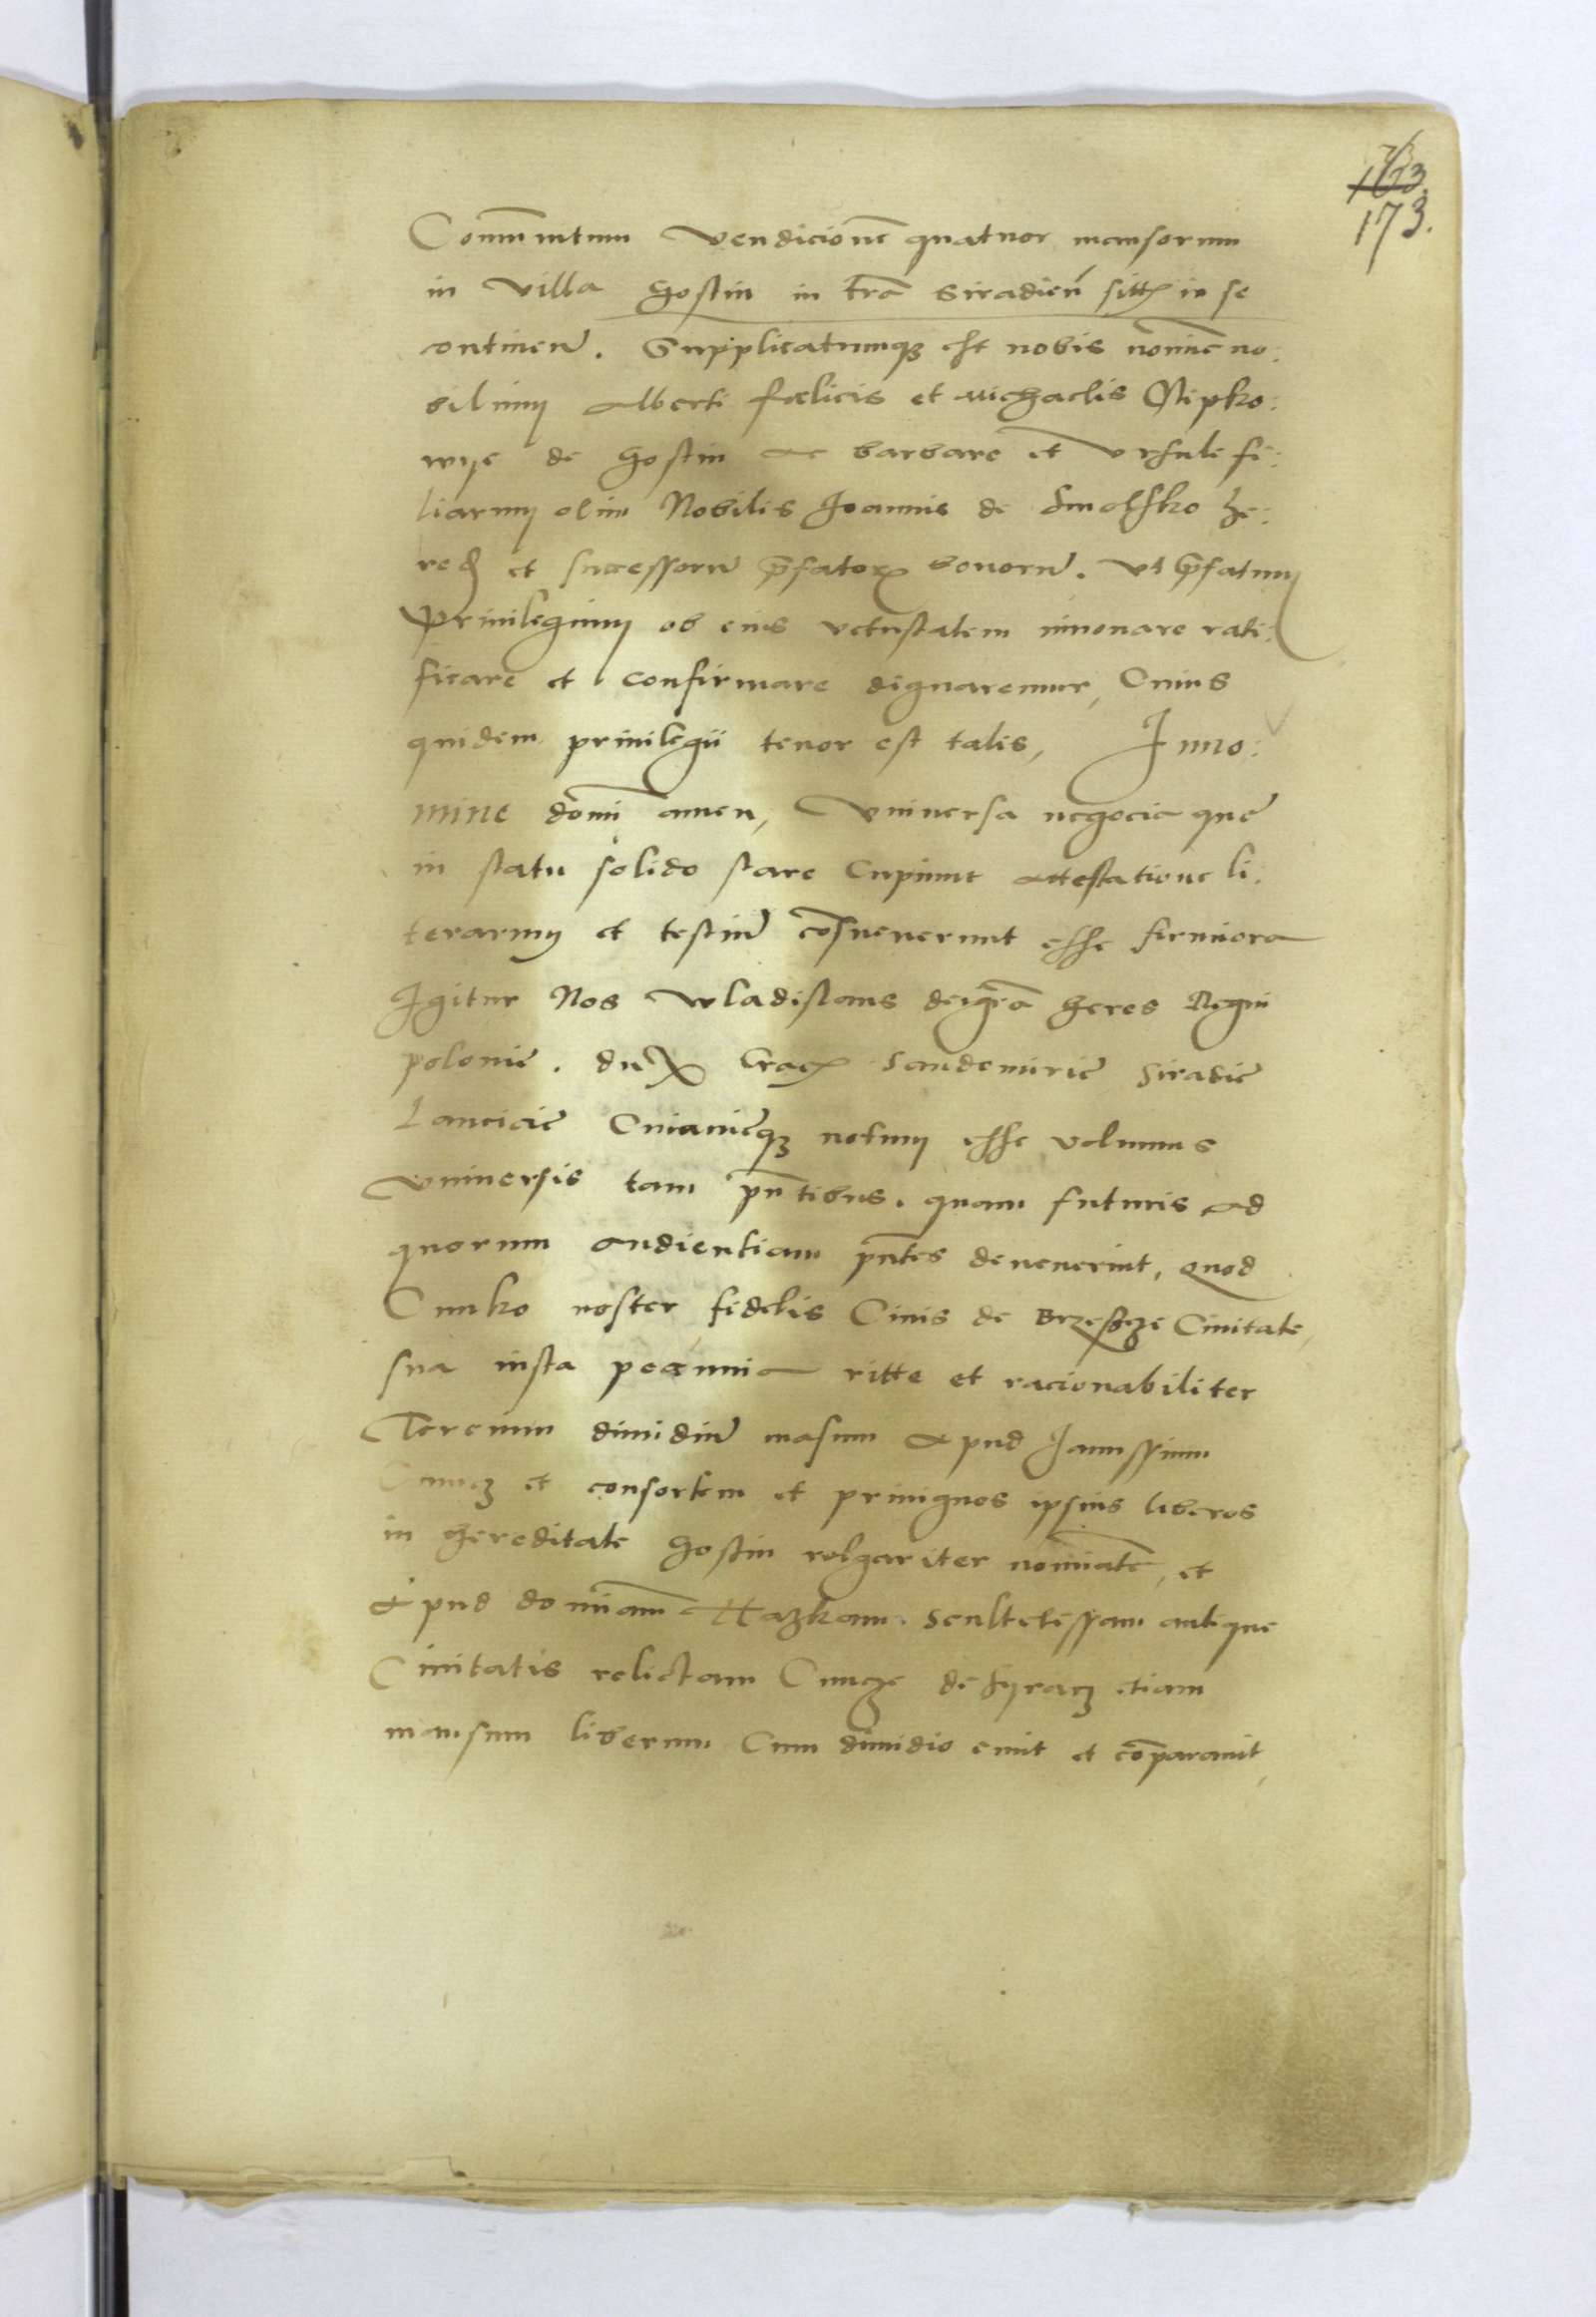 163
173.
Com̄unitum Vendicionē quatuor mansorum
in Villa Gostin in trā Siradien̄ sitt in se
continen̄. Supplicatumqȝ est nobis nomīe no:
bilium Alberti foelicis et Michaelis Stipko:
wye de Gostin ac barbare et Vrsule fi:
liarum olim Nobilis Joannis de Smolsko he:
red et successorū p̄fatorꝝ bonorū. Vt p̄fatum
Priuilegium ob eius vetustatem innouare rati:
ficare et confirmare dignaremur, Cuius
quidem priuilegii tenor est talis, Inno:
mine domī amen, Vniuersa negocia que
in statu solido stare Cupiunt attestatione li:
terarum et testiū cōuenerunt esse firmiora
Igitur Nos Wladislaus dei grā heres Regni
polonie. dux Crac Sandomirie Siradie
Lancicie Cuiauieqȝ notum esse volumus
Vniuersis tam pn̄tibus. quam futuris ad
quorum audientiam pn̄tes deuenerint, quod
Cunko noster fidelis Ciuis de Brzescze Ciuitate,
sua iusta pecunia ritte et racionabiliter
Tercium dimidiū masum Apud Janussium
et consortem et priuignos ipsius liberos
in hereditate Gostin volgariter nomīate, et
Apud domīam Hazkam Scultetissam antique
Ciuitatis relictam Cuncze de Syracz etiam
mansum liberum Cum dimidio emit et cōparauit,